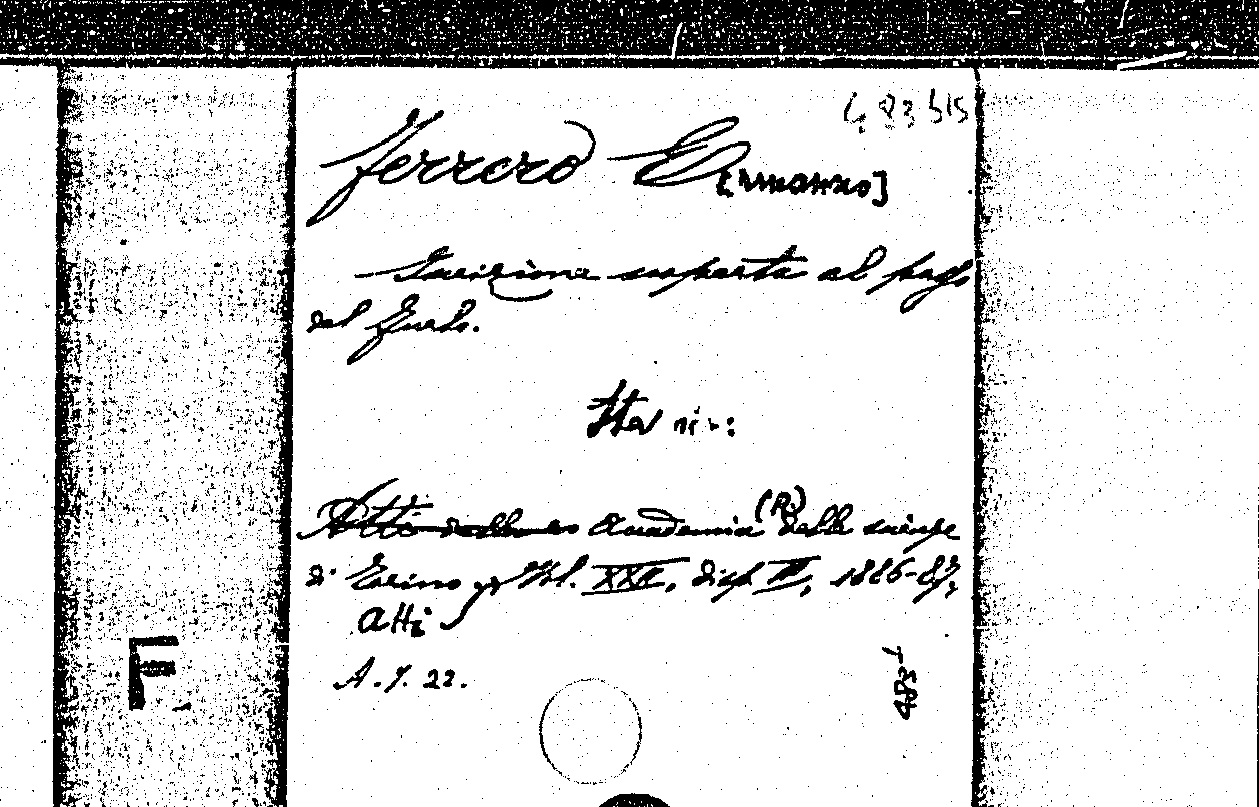 483 bis
Ferrero E[rmanno]
Iscrizione scoperta al passo
del Furlo.
Sta in:
Atti della Accademia (R.) delle scienze
di Torino Vol. XXII, disp. II, 1886-87,
Atti
A. 7. 22.
483
F